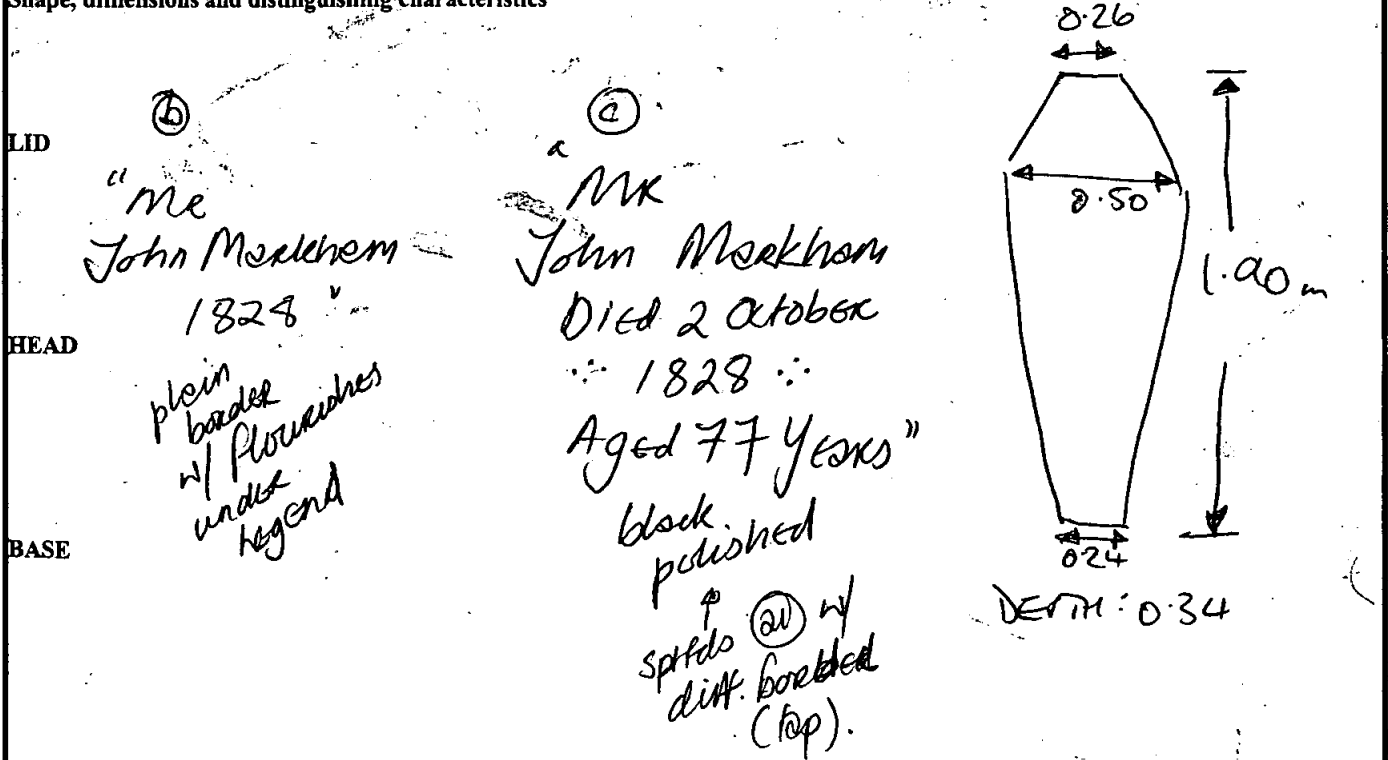 Shape, dimensions and distinguishing characteristics
LID
HEAD
BASE
b
"Mr
John Markham
1828"
plain
border
w/ flourishes
under
legend
c
"Mr
John Markham
Died 2 October
1828
Aged 77 Years"
black
polished
w/
diff. border
(top).
0.26
0.50
1.90 m
0.24
DEPTH: 0.34